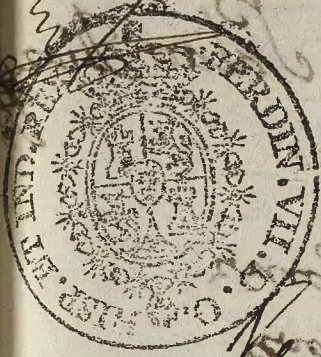 FERDIN·VII·D·G·HISP·ET IND·REX